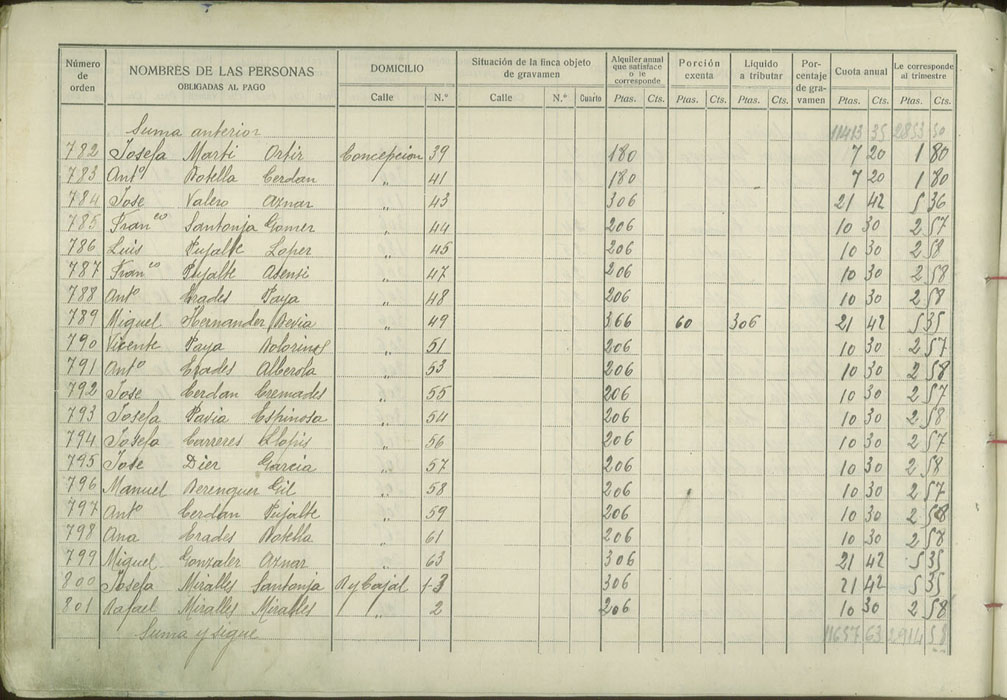 Número de orden | NOMBRES DE LAS PERSONAS OBLIGADAS AL PAGO | DOMICILIO | Situación de la finca objeto de gravamen | Alquiler anual que satisface o le corresponde | Porción exenta | Líquido a tributar | Porcentaje de gravamen | Cuota anual | Le corresponde al trimestre
Calle | N.º | Calle | N.º | Cuarto | Ptas. | Cts. | Ptas. | Cts. | Ptas. | Cts. | Ptas. | Cts. | Ptas. | Cts.
Suma anterior 11413 35 2853 50
782 Josefa Marti Ortiz Concepcion 39 180 7 20 1 80
783 Antº Botella Cerdan " 41 180 7 20 1 80
784 Jose Valero Aznar " 43 306 21 42 5 36
785 Franco Santonja Gomez " 44 206 10 30 2 57
786 Luis Pujalte Lopez " 45 206 10 30 2 58
787 Franco Pujalte Asensi " 47 206 10 30 2 58
788 Antº Erades Paya " 48 206 10 30 2 58
789 Miguel Hernandez Bevia " 49 366 60 306 21 42 5 35
790 Vicente Paya Bolorinos " 51 206 10 30 2 57
791 Antº Erades Alberola " 53 206 10 30 2 58
792 Jose Cerdan Cremades " 55 206 10 30 2 57
793 Josefa Pavia Espinosa " 54 206 10 30 2 58
794 Josefa Carreres Llopis " 56 206 10 30 2 57
795 Jose Diez Garcia " 57 206 10 30 2 58
796 Manuel Berenguer Gil " 58 206 10 30 2 57
797 Antº Cerdan Pujalte " 59 206 10 30 2 58
798 Ana Erades Botella " 61 206 10 30 2 58
799 Miguel Gonzalez Aznar " 63 306 21 42 5 35
800 Josefa Miralles Santonja R y Cajal 3 306 21 42 5 35
801 Rafael Miralles Miralles " 2 206 10 30 2 58
Suma y sigue 11657 63 2914 58